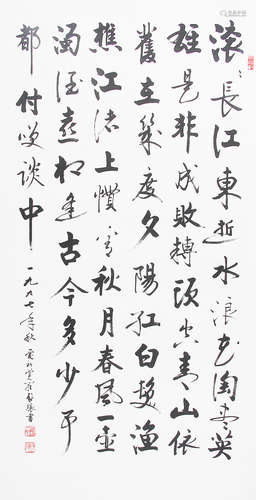 滚〻長江東逝水浪花淘盡英
雄是非成敗轉頭空青山依
舊在幾度夕陽紅白髮漁
樵江渚上慣看秋月春風一壺
濁酒喜相逢古今多少事
都付笑談中
一九九七年秋